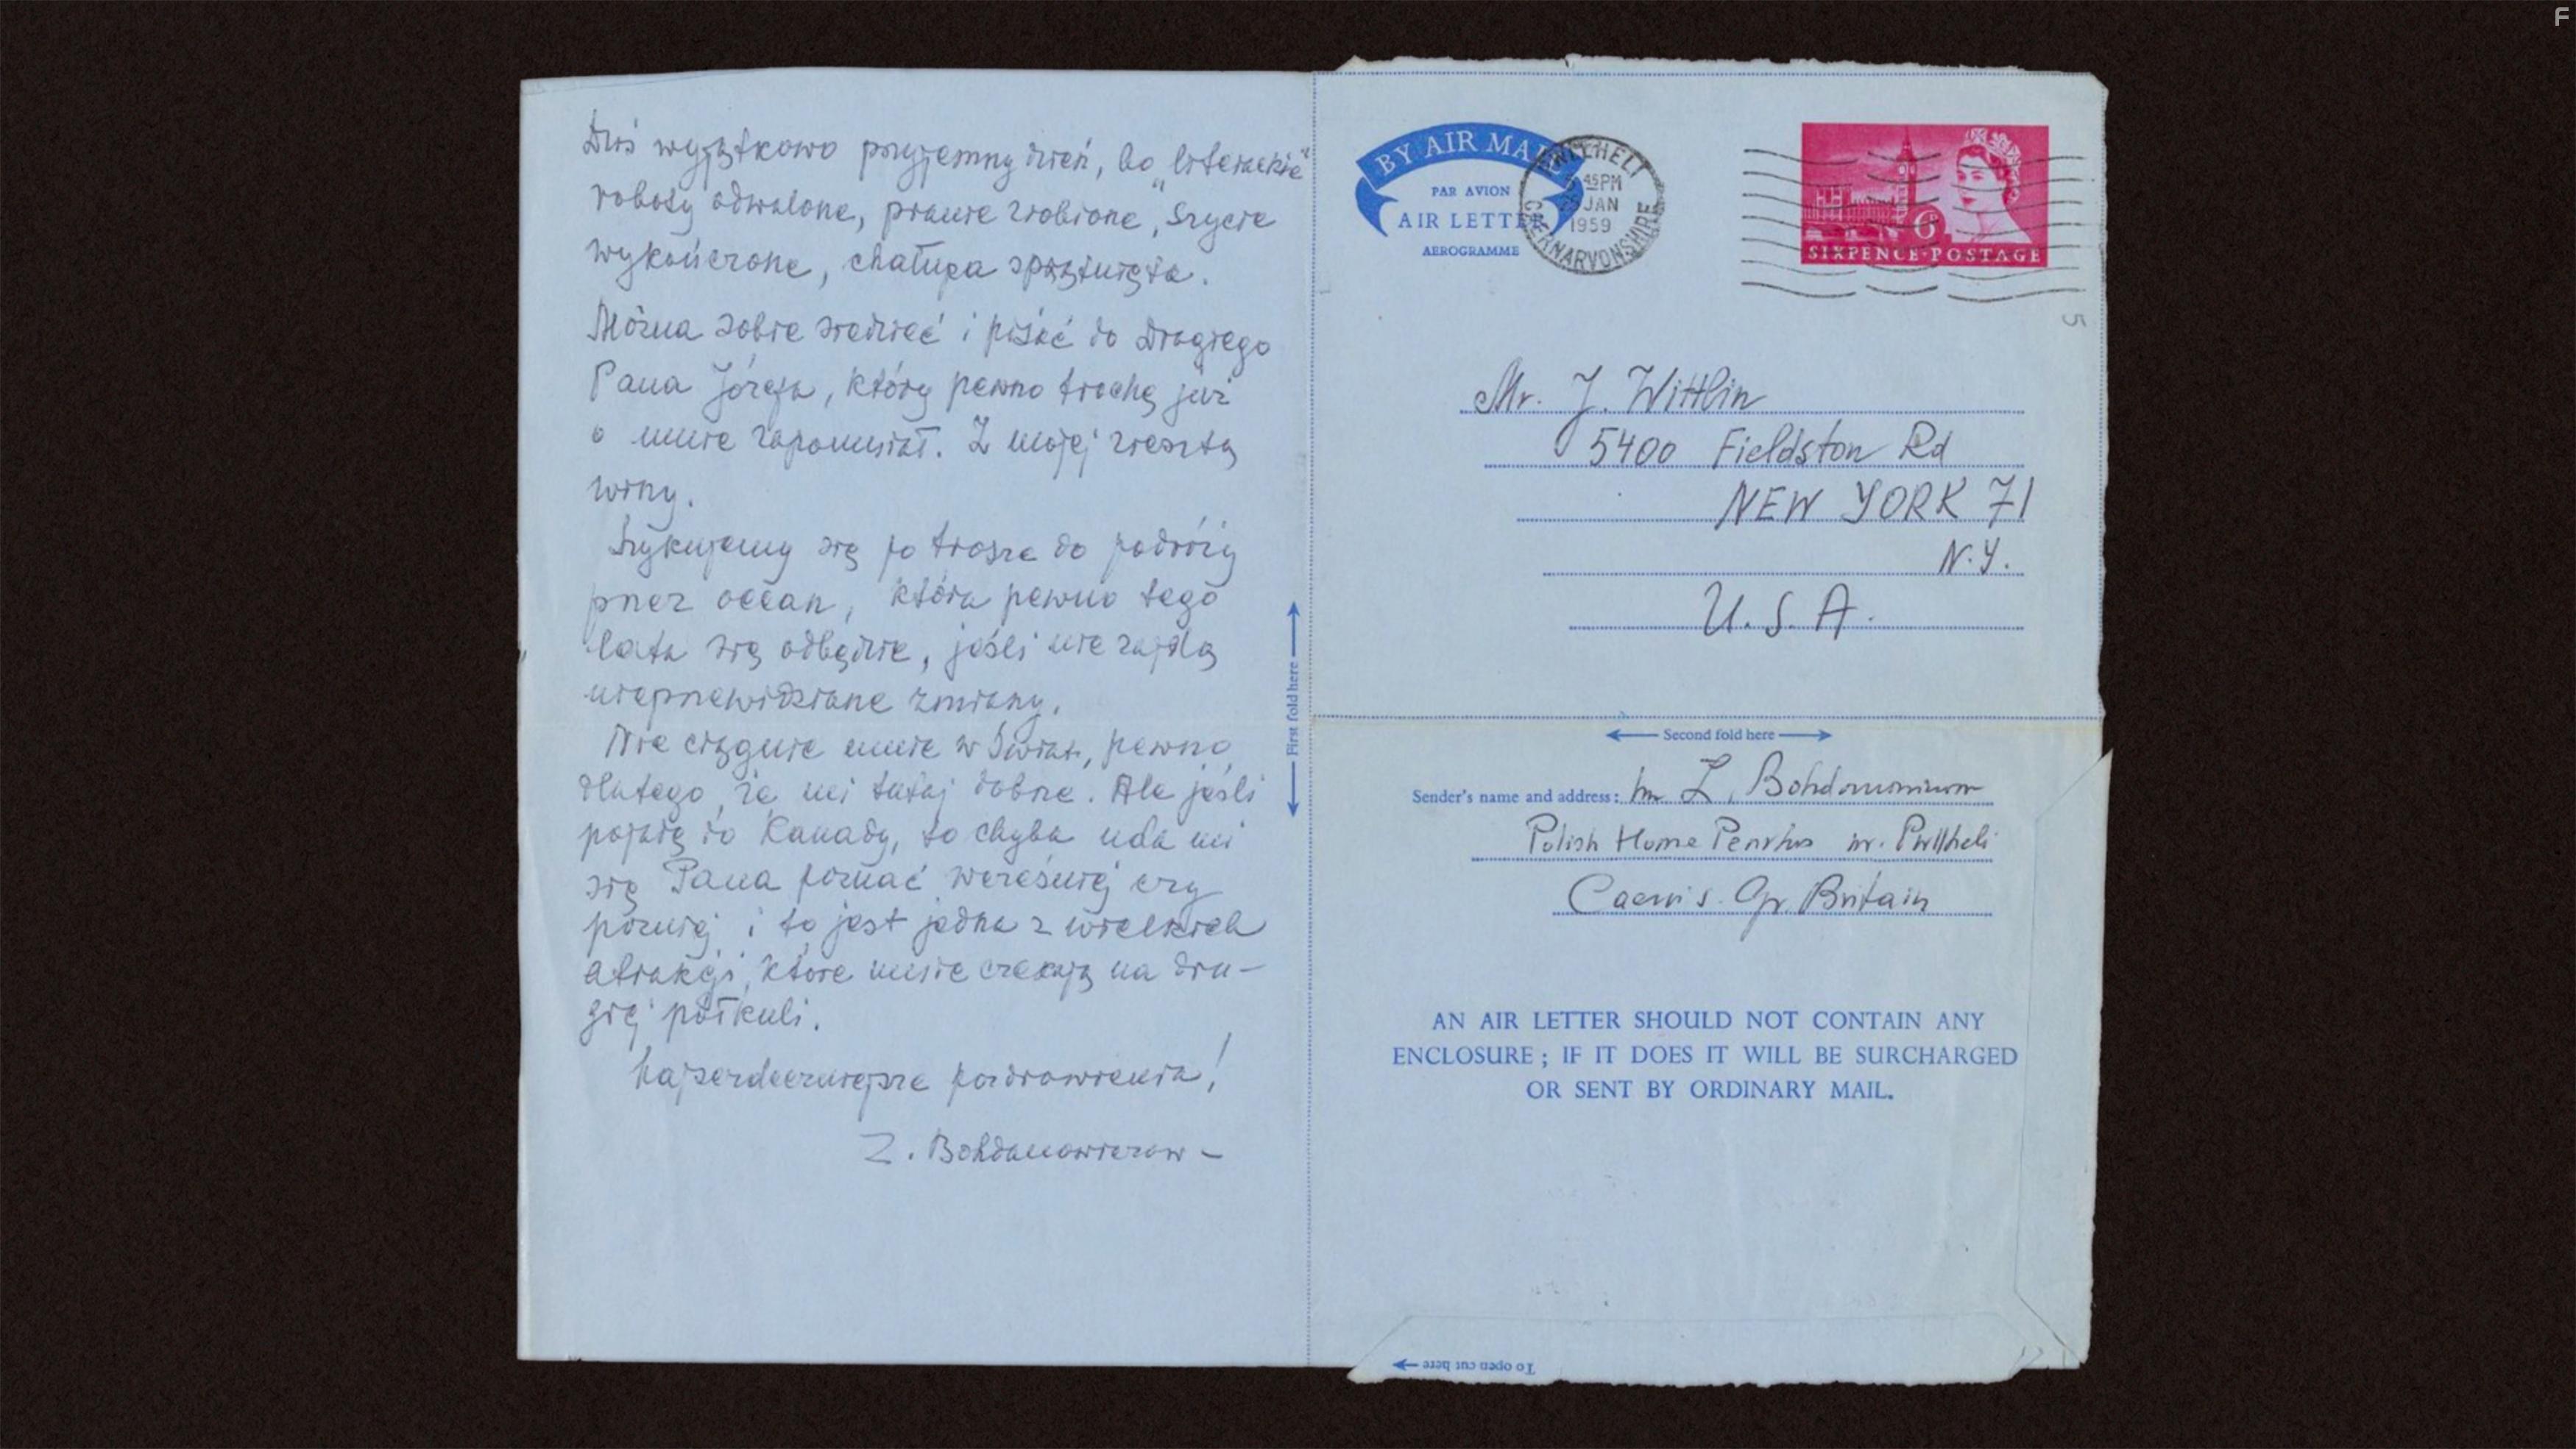 Dziś wyjątkowo przyjemny dzień, bo „literackie"
roboty odwalone, pranie zrobione, szycie
wykończone, chałupa sprzątnięta.
Można sobie siedzieć i pisać do Drogiego
Pana Józefa, który pewno trochę już
o mnie zapomniał. Z mojej zresztą
winy.
Szykujemy się po trosze do podróży
przez ocean, która pewno tego
lata się odbędzie, jeśli nie zajdą
nieprzewidziane zmiany.
Nie ciągnie mnie w świat, pewno
dlatego, że mi tutaj dobrze. Ale jeśli
pojadę do Kanady, to chyba uda mi
się Pana poznać wcześniej czy
później i to jest jedna z wielkich
atrakcji, które mnie czekają na dru-
giej półkuli.
Najserdeczniejsze pozdrowienia!
Z. Bohdanowiczow-
BY AIR MAIL
PAR AVION
AIR LETTER
AEROGRAMME
PWLLHELI
45PM
JAN
1959
CAERNARVONSHIRE
6D
SIXPENCE·POSTAGE
5
Mr. J. Wittlin
5400 Fieldston Rd
NEW YORK 71
N.Y.
U.S.A.
← First fold here →
← Second fold here →
Sender's name and address: Z. 
Polish Home Penrhos nr. Pwllheli
Gr. Britain
AN AIR LETTER SHOULD NOT CONTAIN ANY
ENCLOSURE ; IF IT DOES IT WILL BE SURCHARGED
OR SENT BY ORDINARY MAIL.
To open cut here →
F